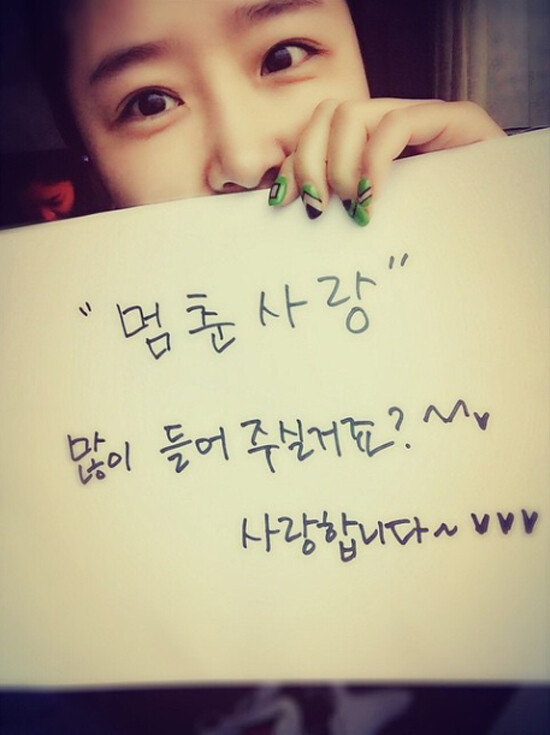 "멈춘 사랑"
많이 들어 주실거죠? ^^♥
사랑합니다~ ♥♥♥